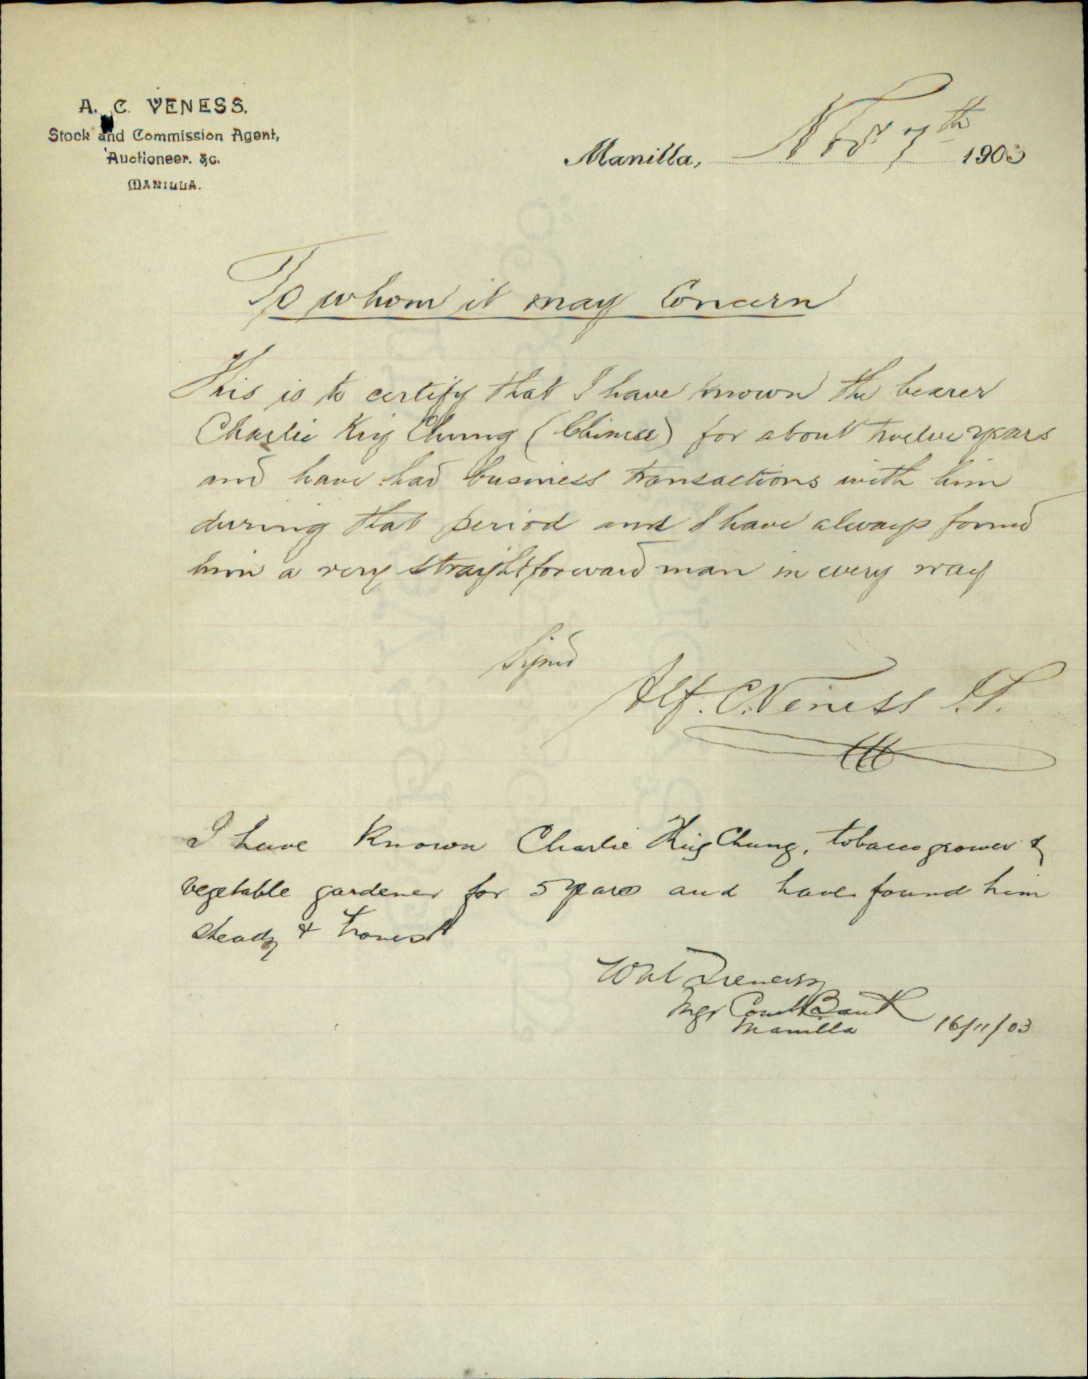 A. C. VENESS.
Stock and Commission Agent,
Auctioneer. &c.
MANILLA.
Manilla, Nov 7th 1903
To whom it may Concern
This is to certify that I have known the bearer
Charlie Kig Chung (Chinese) for about twelve years
and have had business transactions with him
during that period and I have always found
him a very straightforward man in every way
Signed
Alf. C. Veness J.P.
I have known Charlie Kig Chung, tobacco grower &
vegetable gardener for 5 years and have found him
steady & honest
Mgr Bank
Manilla 16/11/03